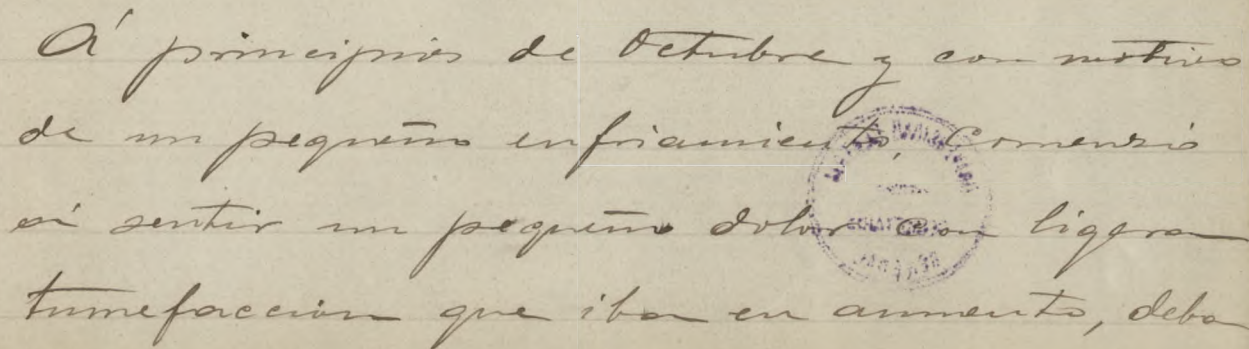 Á principios de Octubre y con motivo
de un pequeño enfriamiento, Comenzó
á sentir un pequeño dolor con ligera
tumefaccion que iba en aumento, deba